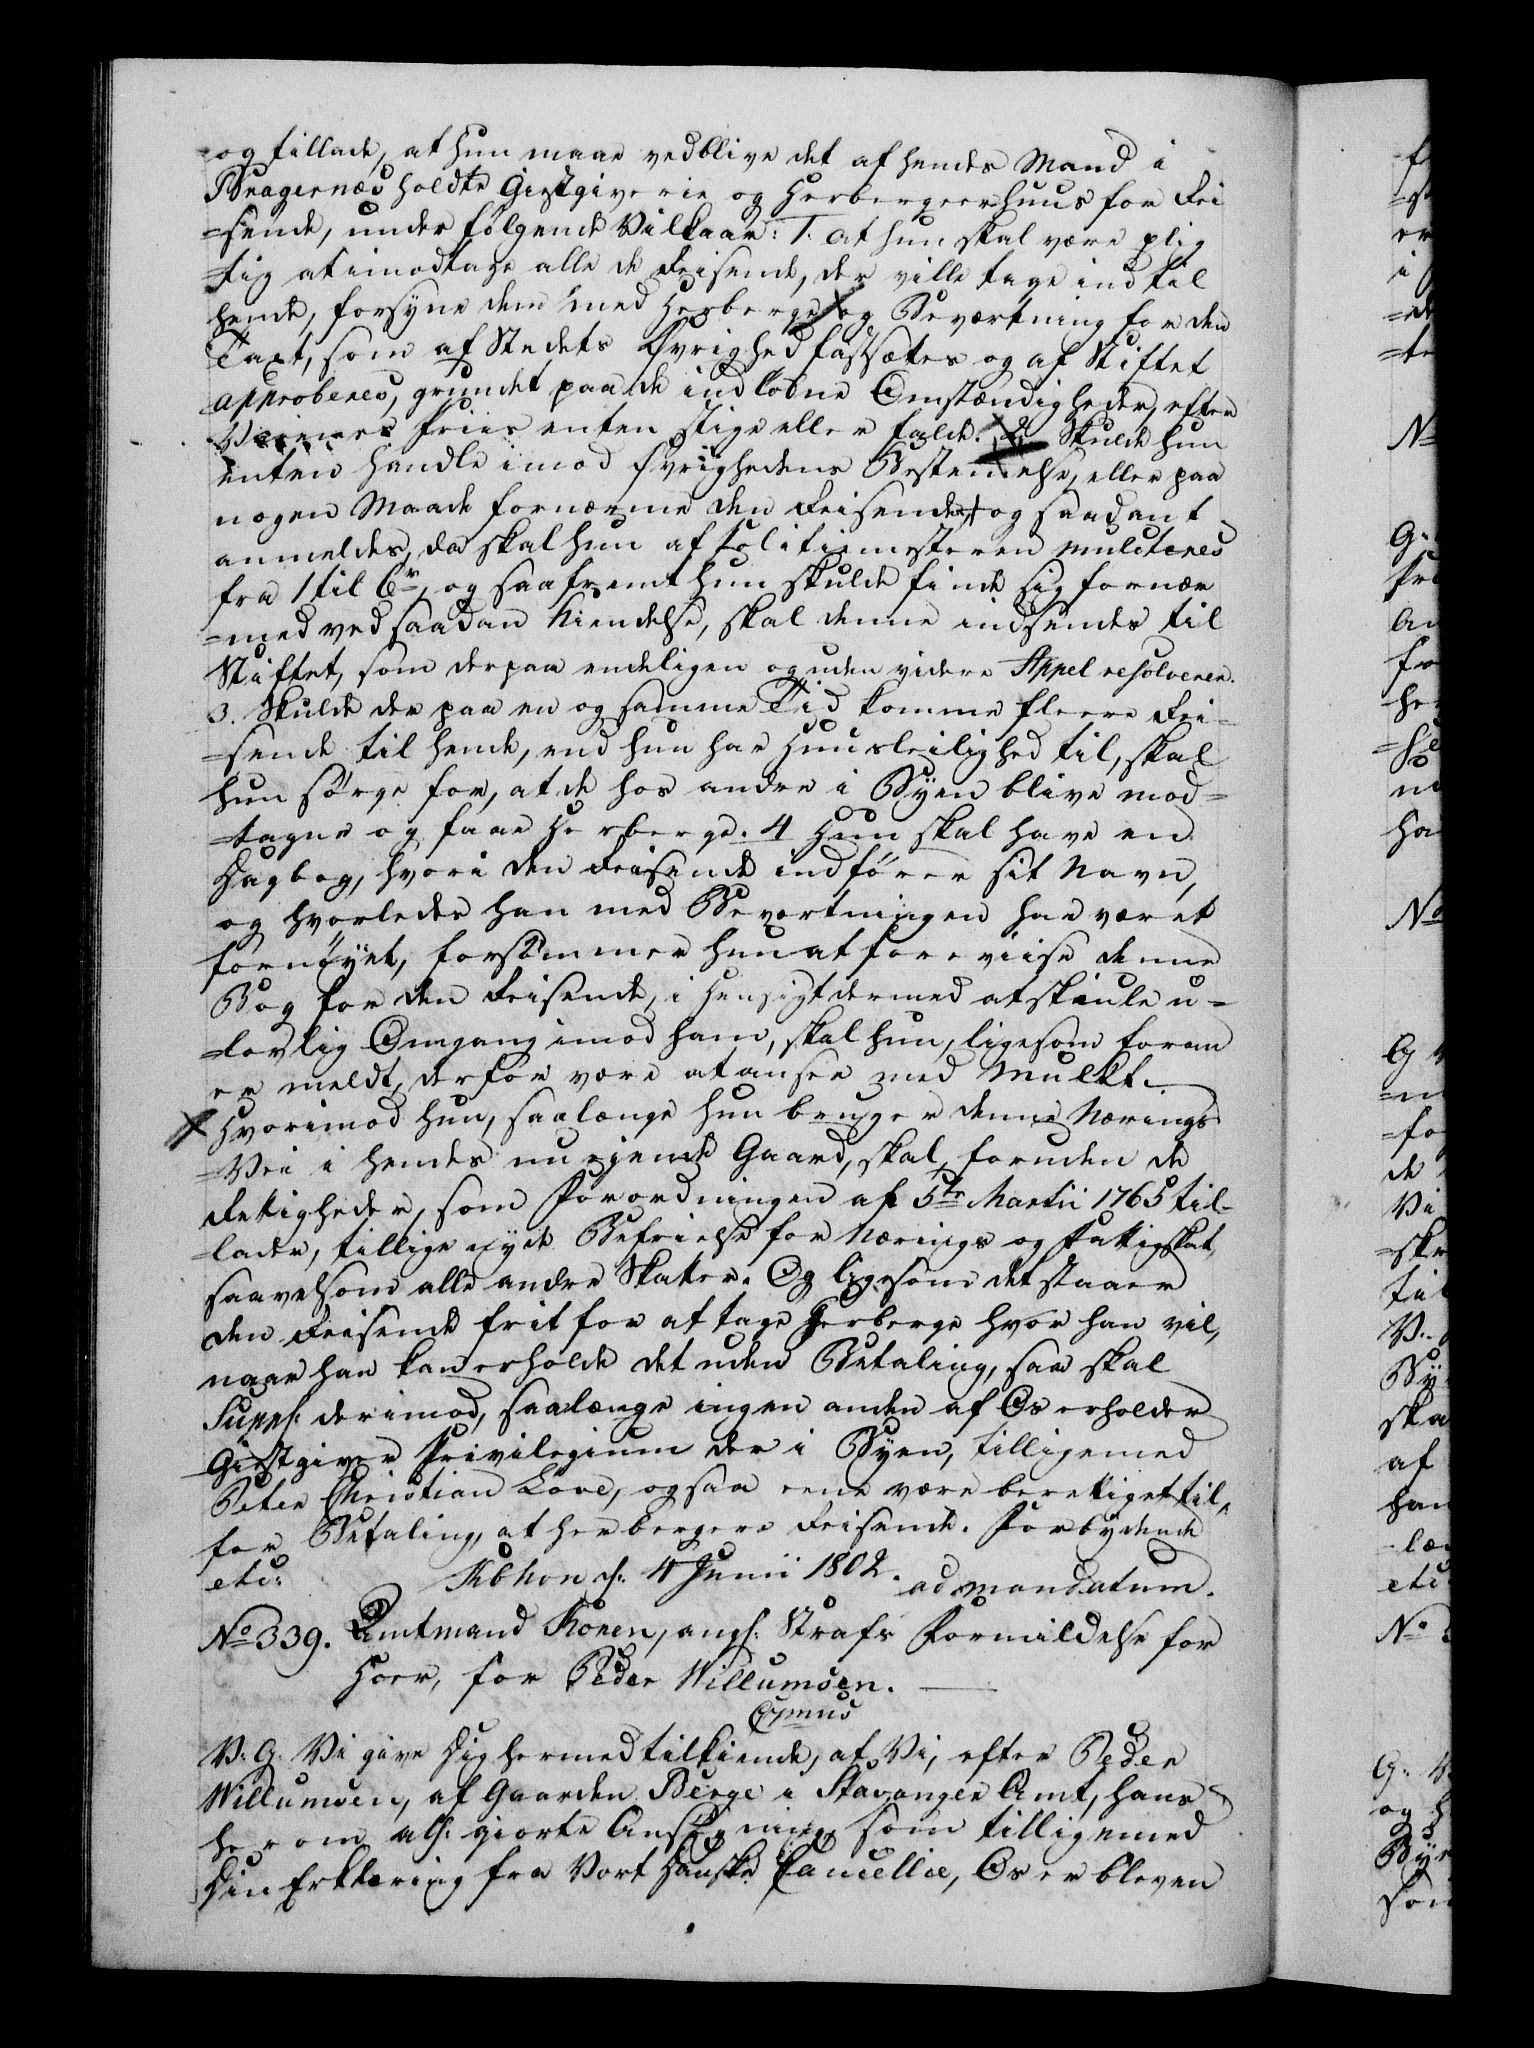 og tillade, at hun maae vedblive det af hendes Mand i
Bragernæs holdte Giestgiverie og Herbergeerhuus for Rei
=sende, under følgende Vilkaar: 1. at hun skal være plig
=tig at imodtage alle de Reisende, der ville tage ind til
hende, forsyne dem med Herberge og Beværtning for den
Taxt, som af Stedets Øvrighed fastsættes og af Stiftet
approberes, grundet paa de indlobne Omstændigheder, efter
Varenes Priis enten stige eller falde. 2. Skulde hun
enten handle imod Øvrighedens Bestemmelse, eller paa
nogen Maade fornærme den Reisende og saadant
anmeldes, da skal hun af Politiemesteren mulcteres
fra 1 til 6 r, og saafremt hun skulde finde sig fornær
=med ved saadan Kiendelse, skal denne indsendes til
Stiftet, som derpaa endeligen og uden videre Appel resolverer.
3. Skulde der paa en og samme Tid komme fleere Rei=
=sende til hende, end hun har Huusleilighed til, skal
hun sørge for, at de hos andre i Byen blive mod=
=tagne og faae Herberge. 4 Hun skal have en
Dagbog, hvori den Reisende indfører sit Navn,
og hvorledes han med Bevertningen har været
fornøyet, forsømmer hun at foreviise denne
Bog for den Reisende, i Hensigt dermed at skiule u=
=lovlig Omgang imod ham, skal hun, ligesom foran
er meldt, derfor være at ansee med Mulkt.
Hvorimod hun, saalænge hun bruger denne Nærings
=Vei i hendes nu eiende Gaard, skal, foruden de
Rettigheder, som Forordningen af 5te Martii 1765 til=
=lader, tillige nyde Befrielse for Nærings og Fattigskat,
saavelsom alle andre Skatter. Og ligesom det staaer
den Reisende frit for at tage Herberge hvor han vil,
naar han kan erholde det uden Betaling, saa skal
Suppl: derimod, saalænge ingen anden af Os erholder
Giestgiver Privilegium der i Byen, tilligemed
Peter Christian Løve, ogsaa eene være berettiget til,
for Betaling, at herbergere Reisende. Forbydende
etc: Kbhvn d: 4 Junii 1802. ad mandatum.
No 339. Amtmand Koren, ang: Strafs Formildelse for
Hoer, for Peder Willumsen.
Cymus
V: G: Vi give Dig hermed tilkiende, at Vi, efter Peder
Willumsen, af Gaarden Berge i Stavanger Amt, hans
herom alh: giorte Ansøgning, som tilligemed
Din Erklæring fra Vort Danske Cancellie, Os er bleven